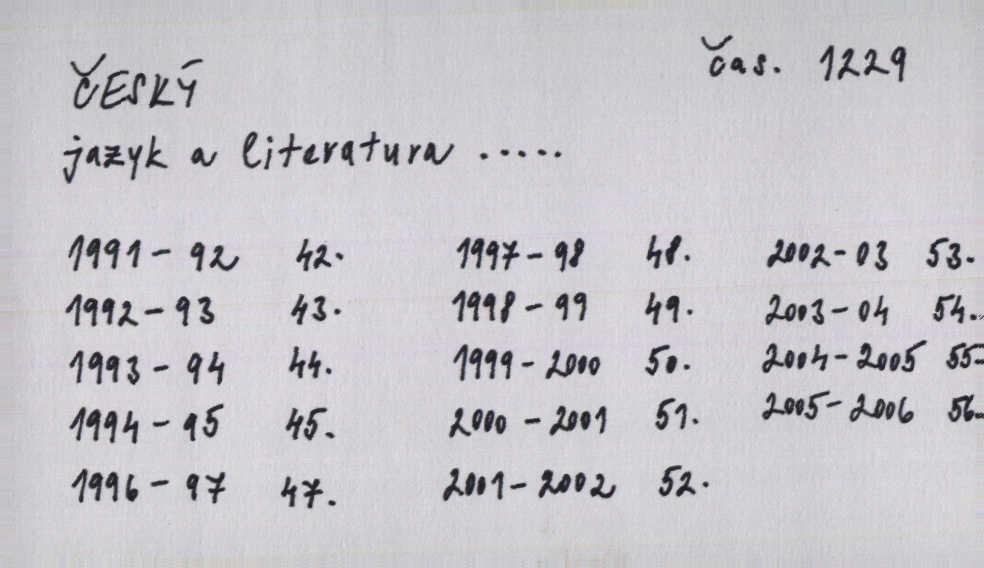 ČESKÝ čas. 1229
jazyk a literatura .....
1991 - 92 42. 1997 - 98 48. 2002 - 03 53.
1992 - 93 43. 1998 - 99 49. 2003 - 04 54.
1993 - 94 44. 1999 - 2000 50. 2004 - 2005 55.
1994 - 95 45. 2000 - 2001 51. 2005 - 2006 56.
1996 - 97 47. 2001 - 2002 52.